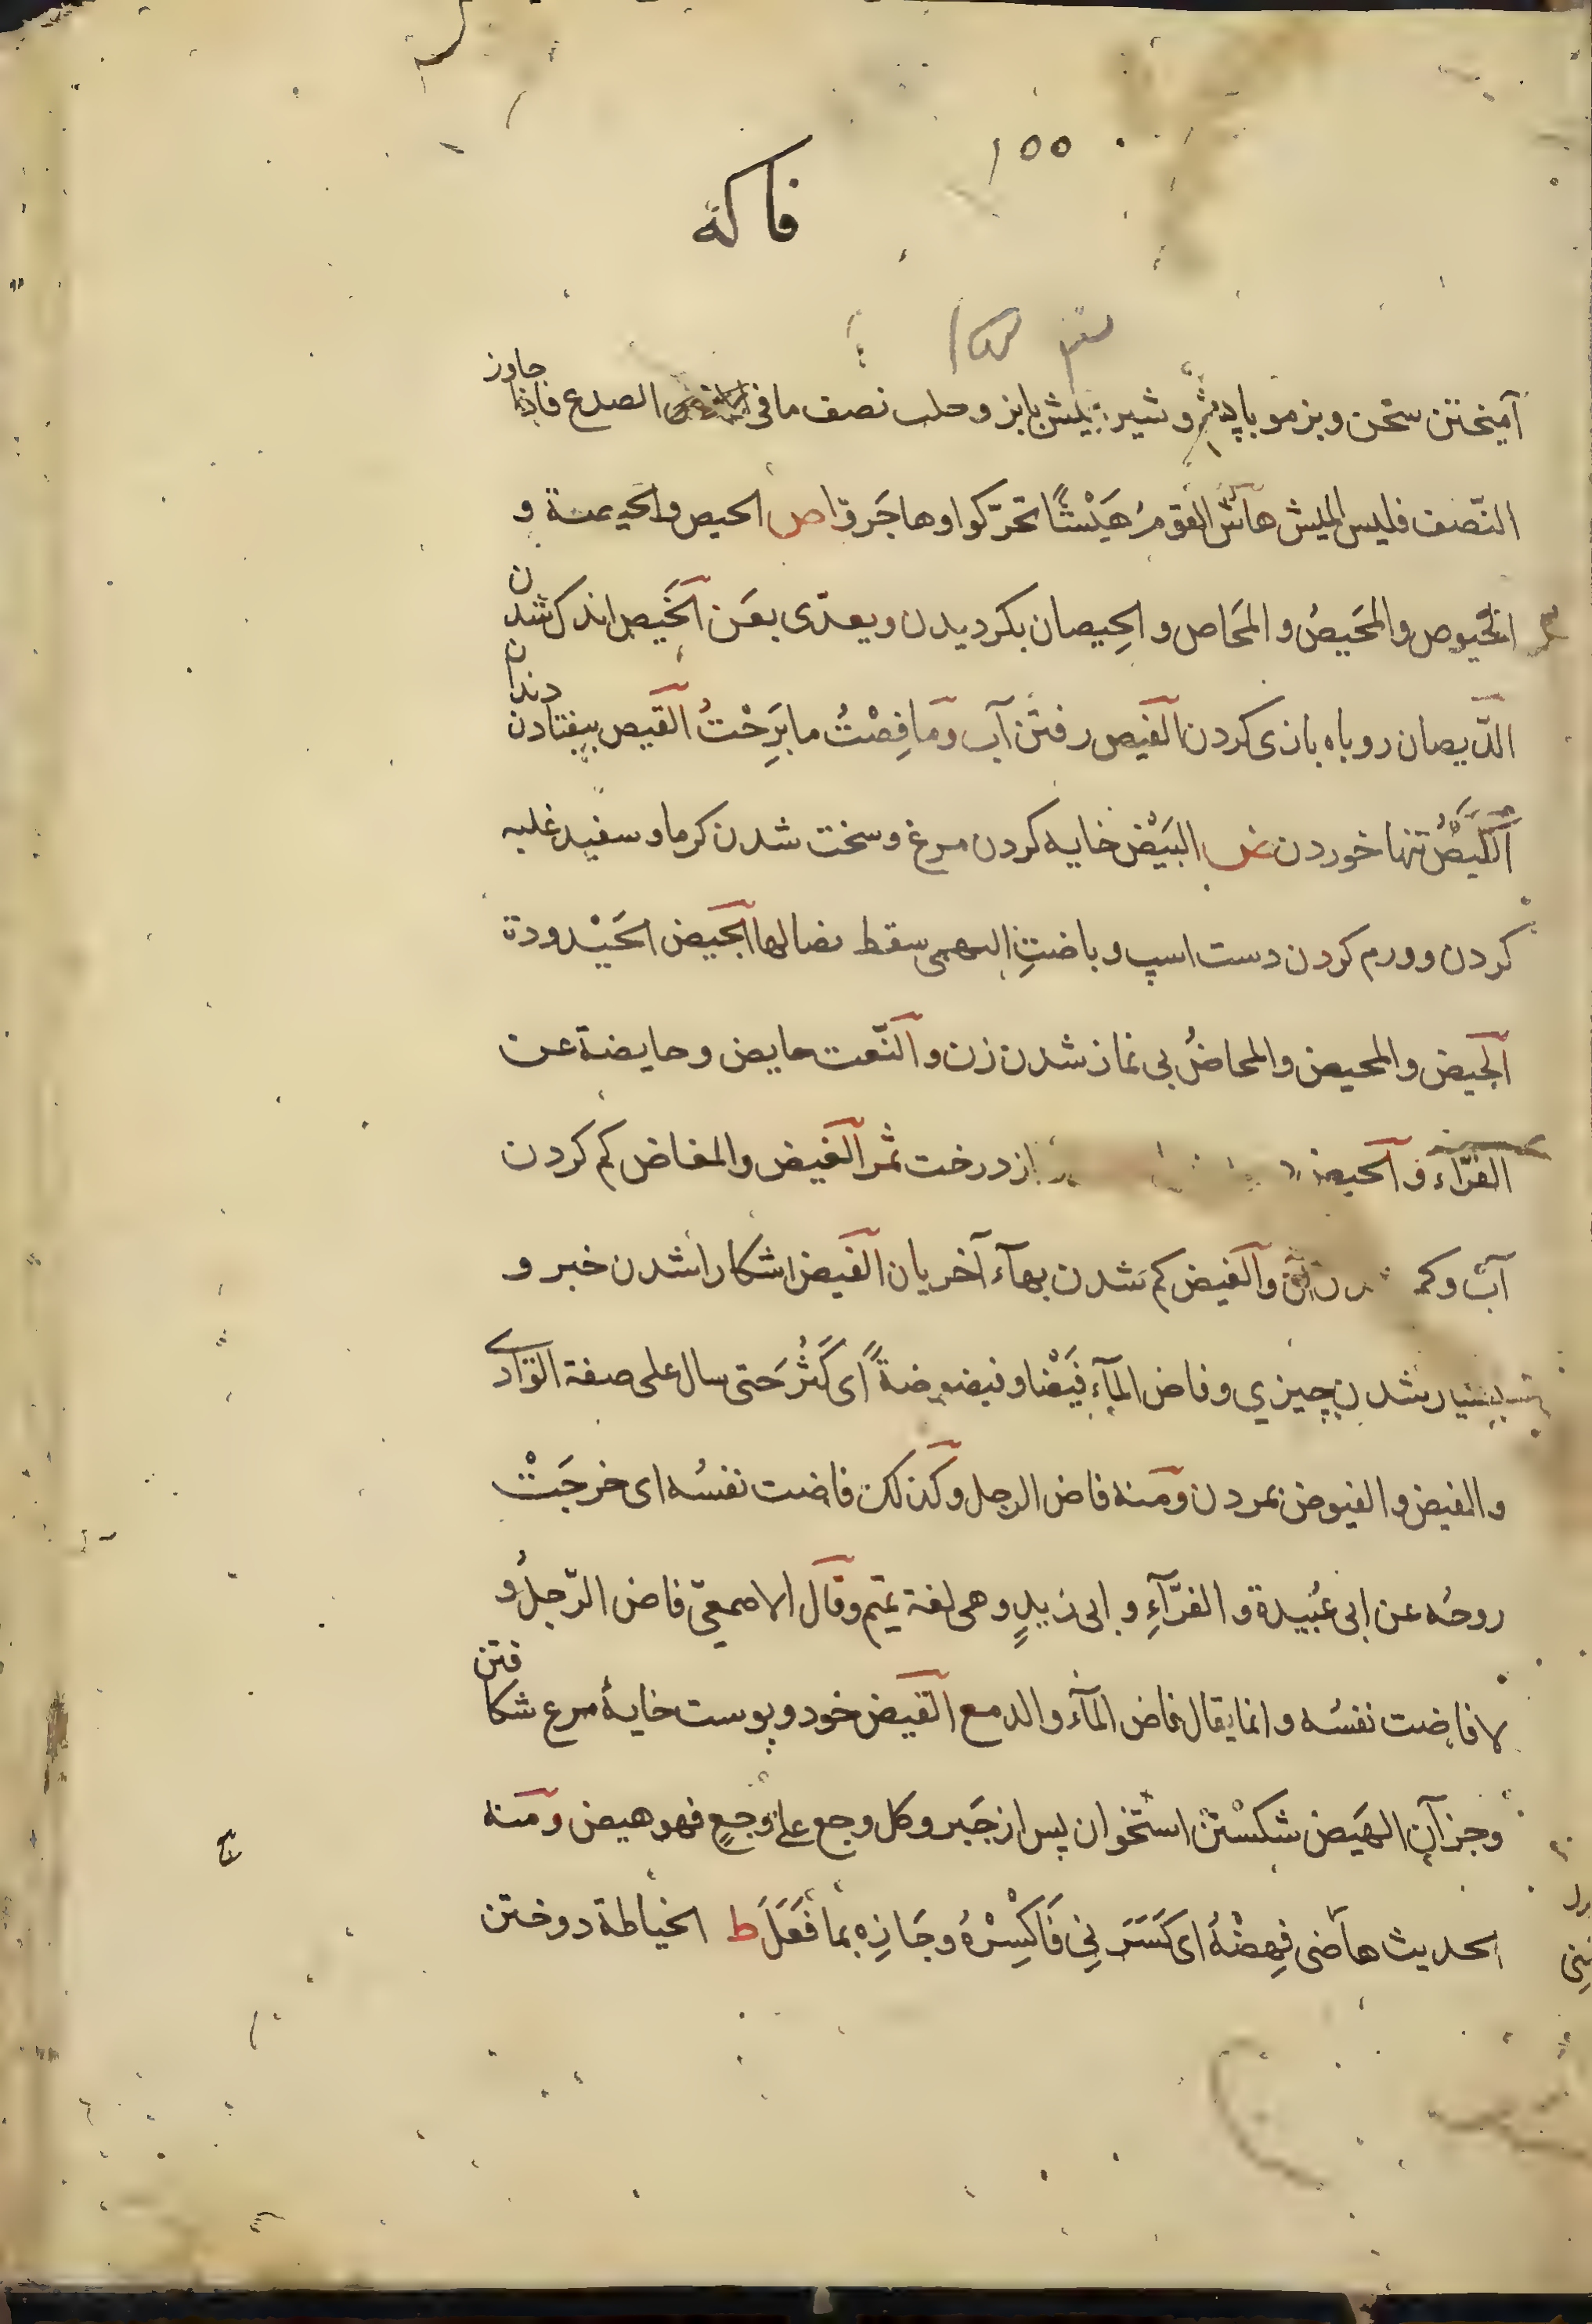 ١٥٥
فاكة
آمیختن سخن و بز مو با پشم و شیر میش با بز و حلب نصف ما فی الضرع فاذا جاوز
النّصف فلیس المیش هاش القومُ هَیْشًا تحرّکوا و هاجَر و ا ص الحیص و الحیصة و
الحیوص و المَحیصُ و المَحَاص و الحِیصان بکردیدن و یعدّی بعَن الخَیص اندک شدن
الدّیصان روباه بازی کردن الفَیص رفتن آب و مَا فِصْتُ ما بَرِحْتُ القَیص بیفتادن دندان
الکَیْصُ تنها خوردن ض البَیْض خایه کردن مرغ و سخت شدن کرما و سفید غلبه
کردن و ورم کردن دست اسپ و باضتِ البهمی سقط نصالها الجَیض الحَیْدودة
الحَیض و المحیض و المحاضُ بی نماز شدن زن و النّعت حایض و حایضة عن
الفرّاء و الحیض از درخت ثمر الغَیض و المغاض کم کردن
آب و الغیض کم شدن بهآء آخریان الفَیض اشکارا شدن خبر و
بسیار شدن چیزی و فاض المآء فَیْضًا و فیضوضةً ای کَثُرَ حَتی سال علی ضفة الوَادی
و الفیض و الفیوض بمردن و منه فاض الرجل و کذلک فاضت نفسُه ای خرجَتْ
روحُه عن ابی عُبیدة و الفرّآءِ و ابی زیدٍ و هی لغة تمیم و قال الاصمعیّ فاض الرّجلُ و
لا فاضت نفسُه و انما یقال فاض المآء و الدمع القَیض خود و پوست خایهٔ مرغ شکافتن
و جز آن الهَیض شکسْتن استخوان پس از جَبر و کل وجع علی وجعٍ فهو هیض و منه
الحدیث هاضنی فهِضْهُ ای کَسَرَنِی فَاکْسِرْهُ و جَازِه بما فَعَلَ ط الخیاطة دوختن